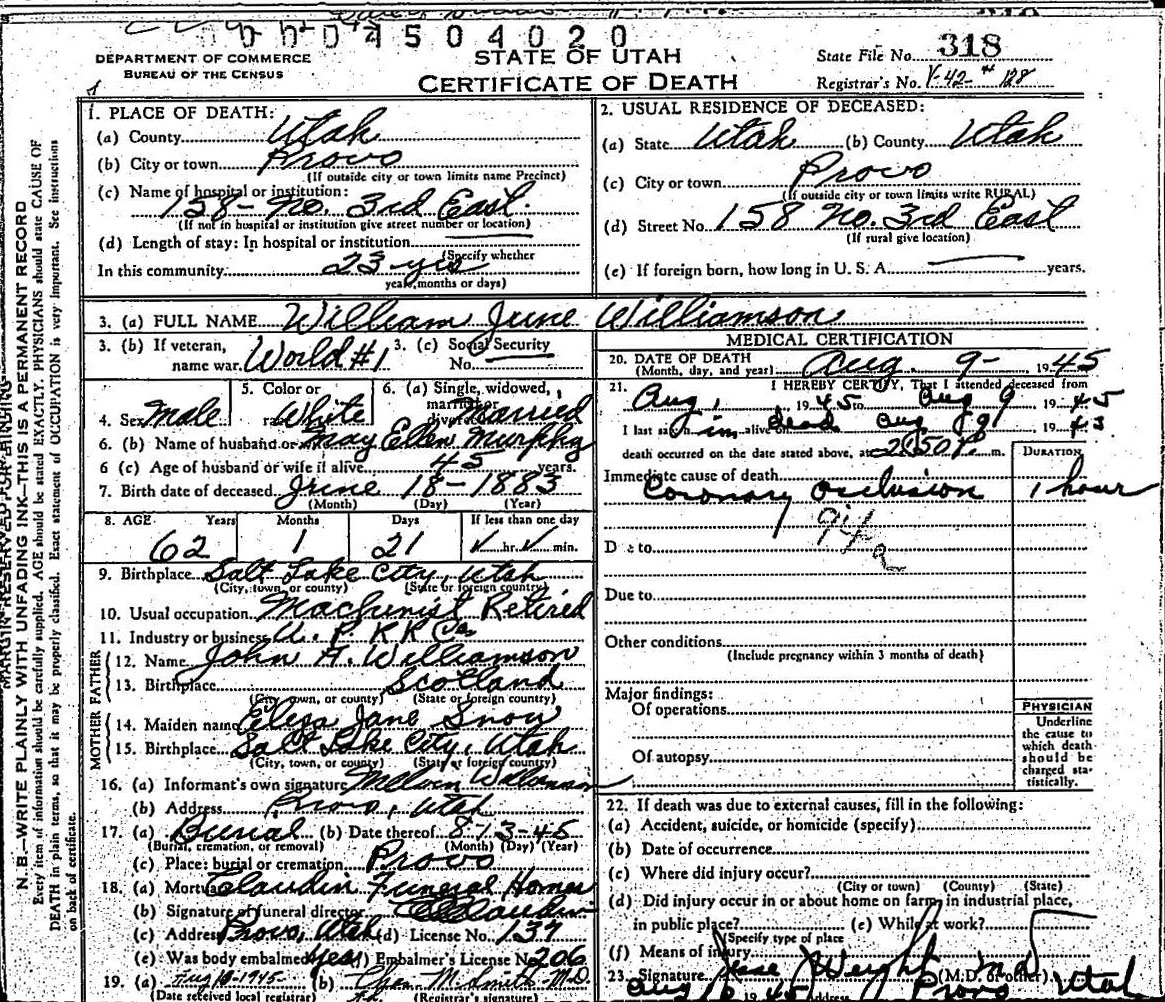 0004504020
DEPARTMENT OF COMMERCE
BUREAU OF THE CENSUS
STATE OF UTAH
CERTIFICATE OF DEATH
State File No. 318
Registrar's No. V-42-# 128
1. PLACE OF DEATH:
(a) County Utah
(b) City or town Provo
(If outside city or town limits name Precinct)
(c) Name of hospital or institution:
158- No. 3rd East.
(If not in hospital or institution give street number or location)
(d) Length of stay: In hospital or institution
(Specify whether
In this community 23-yrs
years, months or days)
2. USUAL RESIDENCE OF DECEASED:
(a) State Utah (b) County Utah
(c) City or town Provo
(If outside city or town limits write RURAL)
(d) Street No. 158 No. 3rd East
(If rural give location)
(e) If foreign born, how long in U. S. A. years.
3. (a) FULL NAME William June Williamson
3. (b) If veteran,
name war World #1
3. (c) Social Security
No.
4. Sex Male
5. Color or
race White
6. (a) Single, widowed,
married or
divorced Married
6. (b) Name of husband or wife May Ellen Murphy
6 (c) Age of husband or wife if alive 45 years.
7. Birth date of deceased June 18-1883
(Month) (Day) (Year)
8. AGE Years Months Days If less than one day
62 1 21 hr. min.
9. Birthplace Salt Lake City, Utah
(City, town, or county) (State or foreign country)
10. Usual occupation Machinist Retired
11. Industry or business U. P. RR Co.
FATHER
12. Name John A. Williamson
13. Birthplace Scotland
(City, town, or county) (State or foreign country)
MOTHER
14. Maiden name Eliza Jane Snow
15. Birthplace Salt Lake City, Utah
(City, town, or county) (State or foreign country)
16. (a) Informant's own signature Melvin Williamson
(b) Address Provo, Utah
17. (a) Burial (b) Date thereof 8-13-45
(Burial, cremation, or removal) (Month) (Day) (Year)
(c) Place: burial or cremation Provo
18. (a) Mortuary Claudin Funeral Homes
(b) Signature of funeral director
(c) Address Provo, Utah (d) License No. 137
(e) Was body embalmed Yes (f) Embalmer's License No. 206
19. (a) Aug 10-1945 (b) Chas. M. Smith M.D.
(Date received local registrar) (Registrar's signature)
MEDICAL CERTIFICATION
20. DATE OF DEATH Aug. 9- 1945
(Month, day, and year)
21. I HEREBY CERTIFY, That I attended deceased from
Aug, 1945 to Aug 9 1945
I last saw him alive on dead Aug 9 1945
death occurred on the date stated above, at 2:50 P. m.
DURATION
Immediate cause of death
Coronary Occlusion 1 hour
94a
Due to
Due to
Other conditions
(Include pregnancy within 3 months of death)
Major findings:
Of operations
Of autopsy
PHYSICIAN
Underline
the cause to
which death
should be
charged sta-
tistically.
22. If death was due to external causes, fill in the following:
(a) Accident, suicide, or homicide (specify)
(b) Date of occurrence
(c) Where did injury occur?
(City or town) (County) (State)
(d) Did injury occur in or about home on farm, in industrial place,
in public place? (e) While at work?
(Specify type of place
(f) Means of injury
23. Signature Jesse Weight MD (M.D. or other)
Aug 10 1945 Address Provo Utah
MARGIN RESERVED FOR BINDING
N. B.—WRITE PLAINLY WITH UNFADING INK—THIS IS A PERMANENT RECORD
Every item of information should be carefully supplied. AGE should be stated EXACTLY. PHYSICIANS should state CAUSE OF
DEATH in plain terms, so that it may be properly classified. Exact statement of OCCUPATION is very important. See instructions
on back of certificate.